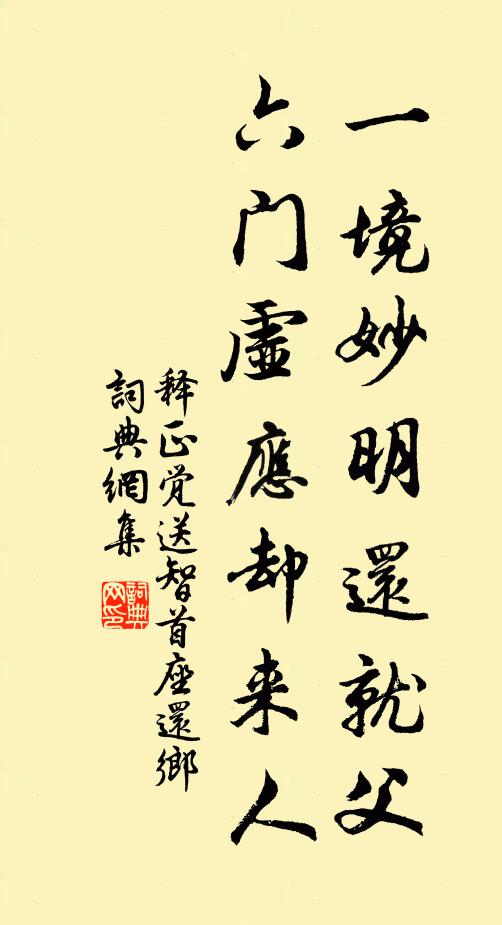 一境妙明還就父
六门虛應却来人
释正觉送智首座還鄉
詞典網集
詞典网印